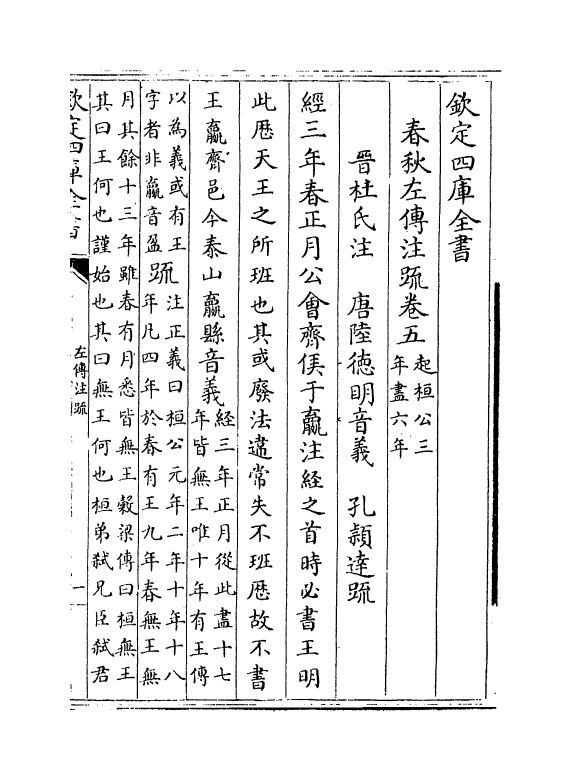 欽定四庫全書
春秋左傳注䟽卷五
起桓公三
年盡六年
晉杜氏注 唐陸徳明音義 孔頴達䟽
經三年春正月公會齊侯于嬴注經之首時必書王明
此厯天王之所班也其或廢法違常失不班厯故不書
王嬴齊邑今泰山嬴縣音義
經三年正月從此盡十七
年皆無王唯十年有王傳
以為義或有王
字者非嬴音盈
䟽
注正義曰桓公元年二年十年十八
年凡四年於春有王九年春無王無
月其餘十三年雖春有月悉皆無王榖梁傳曰桓無王
其曰王何也謹始也其曰無王何也桓弟弑兄臣弑君
欽定四庫全書
左傳注䟽
一